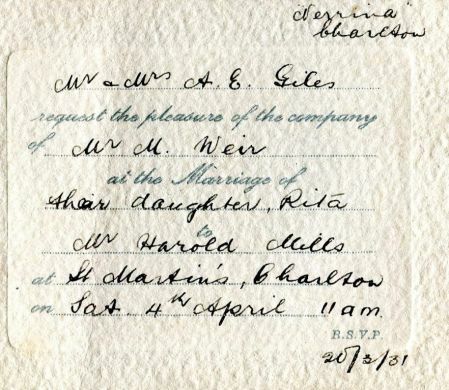 "Nerrina"
Charlton
Mr & Mrs A. E. Giles
request the pleasure of the company
of Mr M. Weir
at the Marriage of
their daughter, Rita
to
Mr Harold Mills
at St Martin's, Charlton
on Sat. 4th April 11 am.
R.S.V.P.
20/3/31